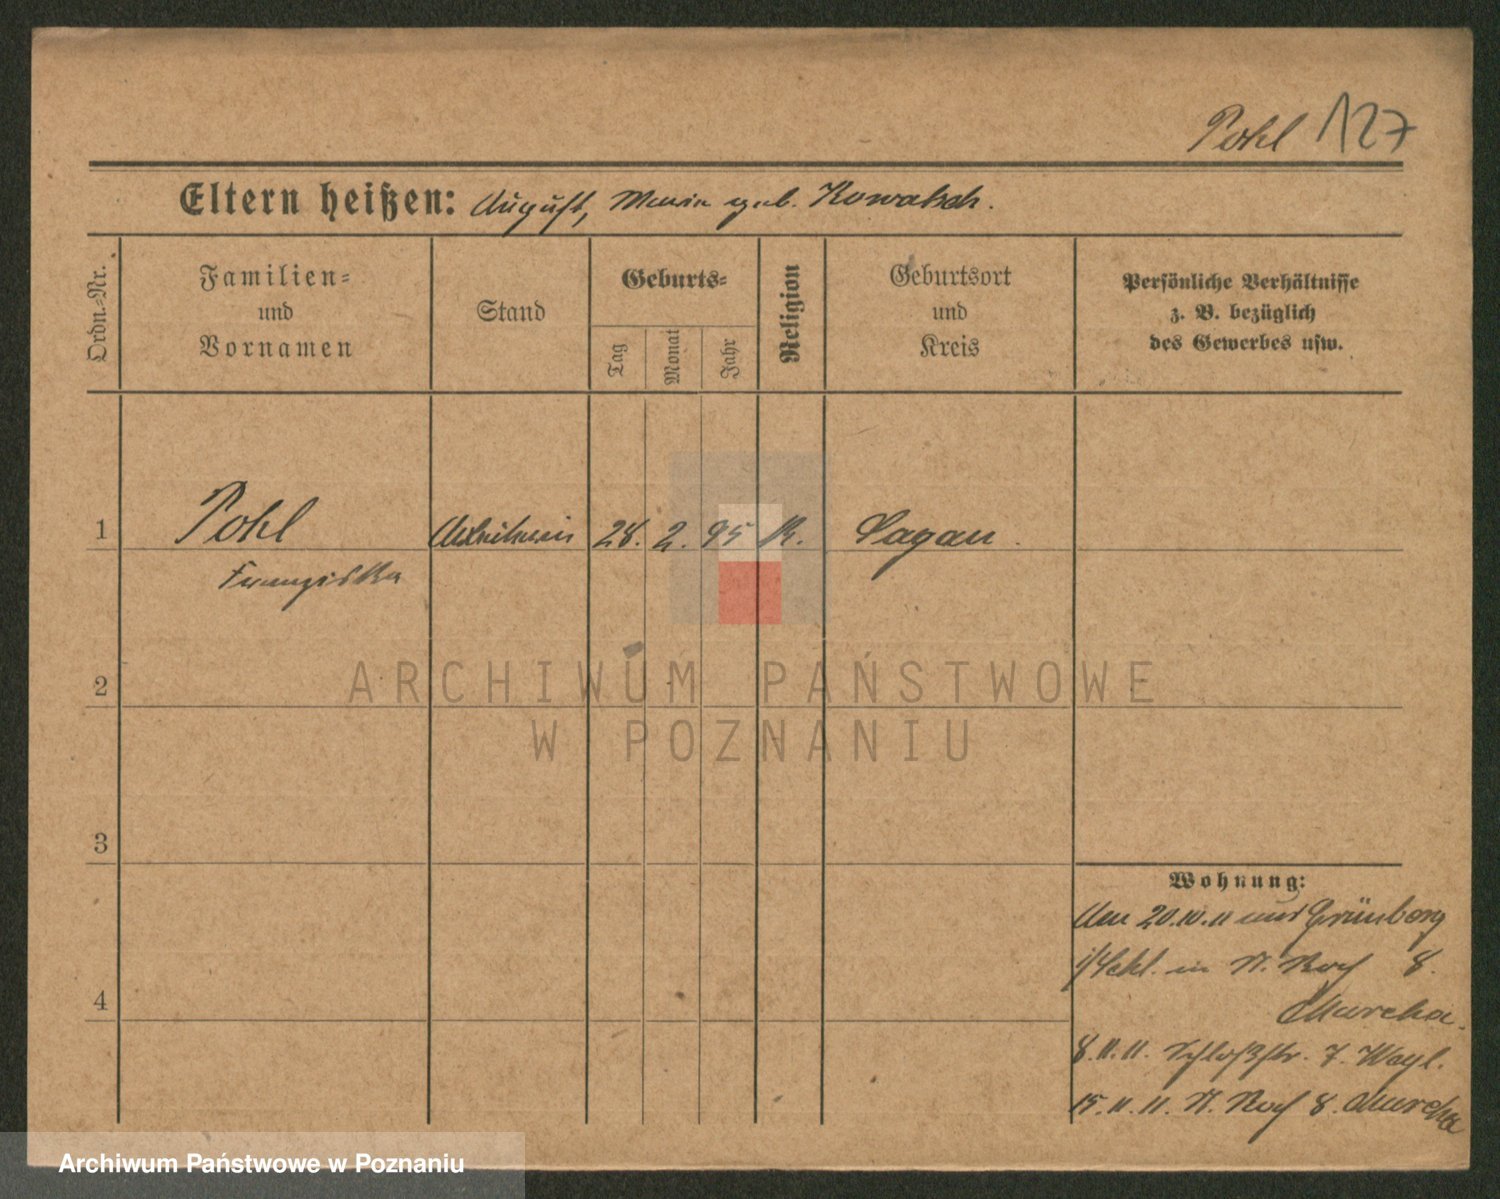 Pohl 127
Eltern heißen: August, Maria geb. Kowalsch.
Ordn.-Nr.
Familien-
und
Vornamen
Stand
Geburts-
Tag
Monat
Jahr
Religion
Geburtsort
und
Kreis
Persönliche Verhältnisse
z. B. bezüglich
des Gewerbes usw.
1 Pohl Arbeiterin 28. 2. 95 K. Sagan.
Franziska
2
3
4
ARCHIWUM PAŃSTWOWE
W POZNANIU
Wohnung:
Am 20.10.11 aus Grünberg
i/Schl. in St. Roch 8.
8.11.11. Schloßstr. 7.
15.11.11. St. Roch 8.
Archiwum Państwowe w Poznaniu